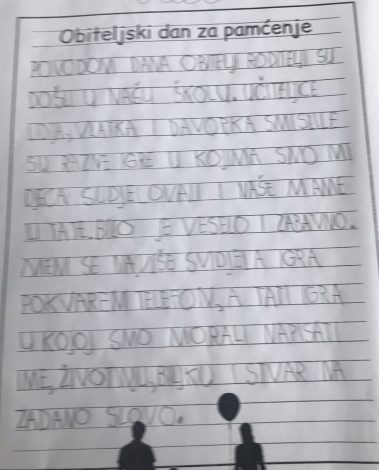 Obiteljski dan za pamćenje
POVODOM DANA OBITELJI RODITELJI SU
DOŠLI U NAŠU ŠKOLU. UČITELJICE
LIDIJA, VLATKA I DAVORKA SMISLILE
SU RAZNE IGRE U KOJIMA SMO MI
DJECA SUDJELOVALI I NAŠE MAME
U TATE. BILO JE VESELO I ZABAVNO.
MENI SE NAJVIŠE SVIDJELA IGRA
POKVARENI TELEFON, A TATI IGRA
U KOJOJ SMO MORALI NAPISATI
IME, ŽIVOTINJU, BILJKU I STVAR NA
ZADANO SLOVO.